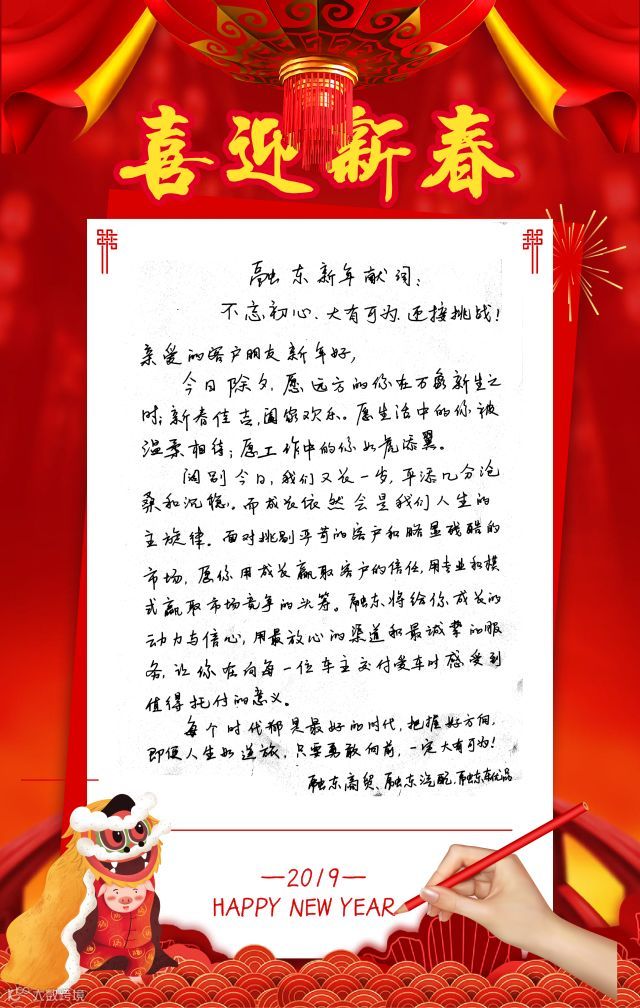 喜迎新春
融东新年献词：
不忘初心、大有可为、迎接挑战！
亲爱的客户朋友新年好，
今日除夕，愿远方的你在万象新生之
时；新春佳吉，阖家欢乐。愿生活中的你被
温柔相待；愿工作中的你如虎添翼。
阔别今日，我们又长一步，平添几分沧
桑和沉稳。而成长依然会是我们人生的
主旋律。面对挑剔苛的客户和略显残酷的
市场，愿你用成长赢取客户的信任，用专业和模
式赢取市场竞争的头筹。融东将给你成长的
动力与信心，用最放心的渠道和最诚挚的服
务，让你在向每一位车主交付爱车时感受到
值得托付的意义。
每个时代都是最好的时代，把握好方向，
即便人生如逆旅，只要勇敢向前，一定大有可为！
融东商贸、融东汽配、融东车优品
—2019—
HAPPY NEW YEAR
大数跨境